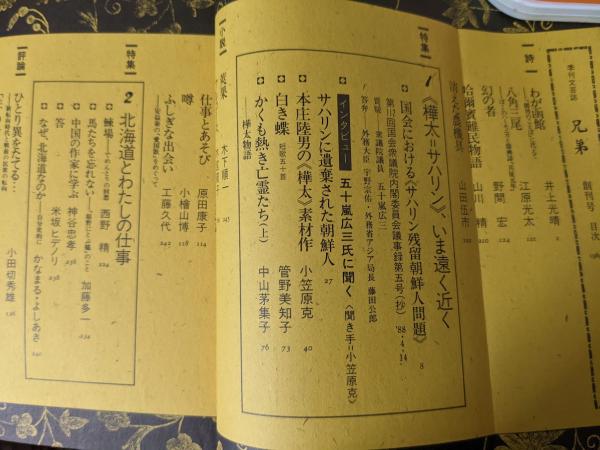 季刊文芸誌 兄弟 創刊号 目次
詩
わが函館 井上光晴
八角 江原光太
幻の者 野間宏
哈爾賓難民物語 山川精
消えた飛機具 山田伍市
特集
1 《樺太=サハリン》、いま遠く近く
国会における〈サハリン残留朝鮮人問題〉 8
第112回国会衆議院内閣委員会議事録第五号(抄) '88・4・14
質疑 衆議院議員 五十嵐広三
答弁 外務大臣 宇野宗佑・外務省アジア局長 藤田公郎
インタビュー 五十嵐広三氏に聞く〈聞き手=小笠原克〉
サハリンに遺棄された朝鮮人 27
本庄陸男の《樺太》素材作 小笠原克 40
白き蝶 短歌五十首 菅野美知子 73
かくも熱き亡霊たち(上) 中山茅集子 76
──樺太物語
小説
木下順一
仕事とあそび 原田康子 114
噂 小檜山博 118
ふしぎな出会い 工藤久代 242
特集
2 北海道とわたしの仕事
鰊場 西野精 224
馬たちを忘れない 加藤多一 234
中国の作家に学ぶ 神谷忠孝 236
答 米坂ヒデノリ 238
なぜ、北海道なのか かなまる・よしあき 240
評論
ひとり異をたてる… 小田切秀雄